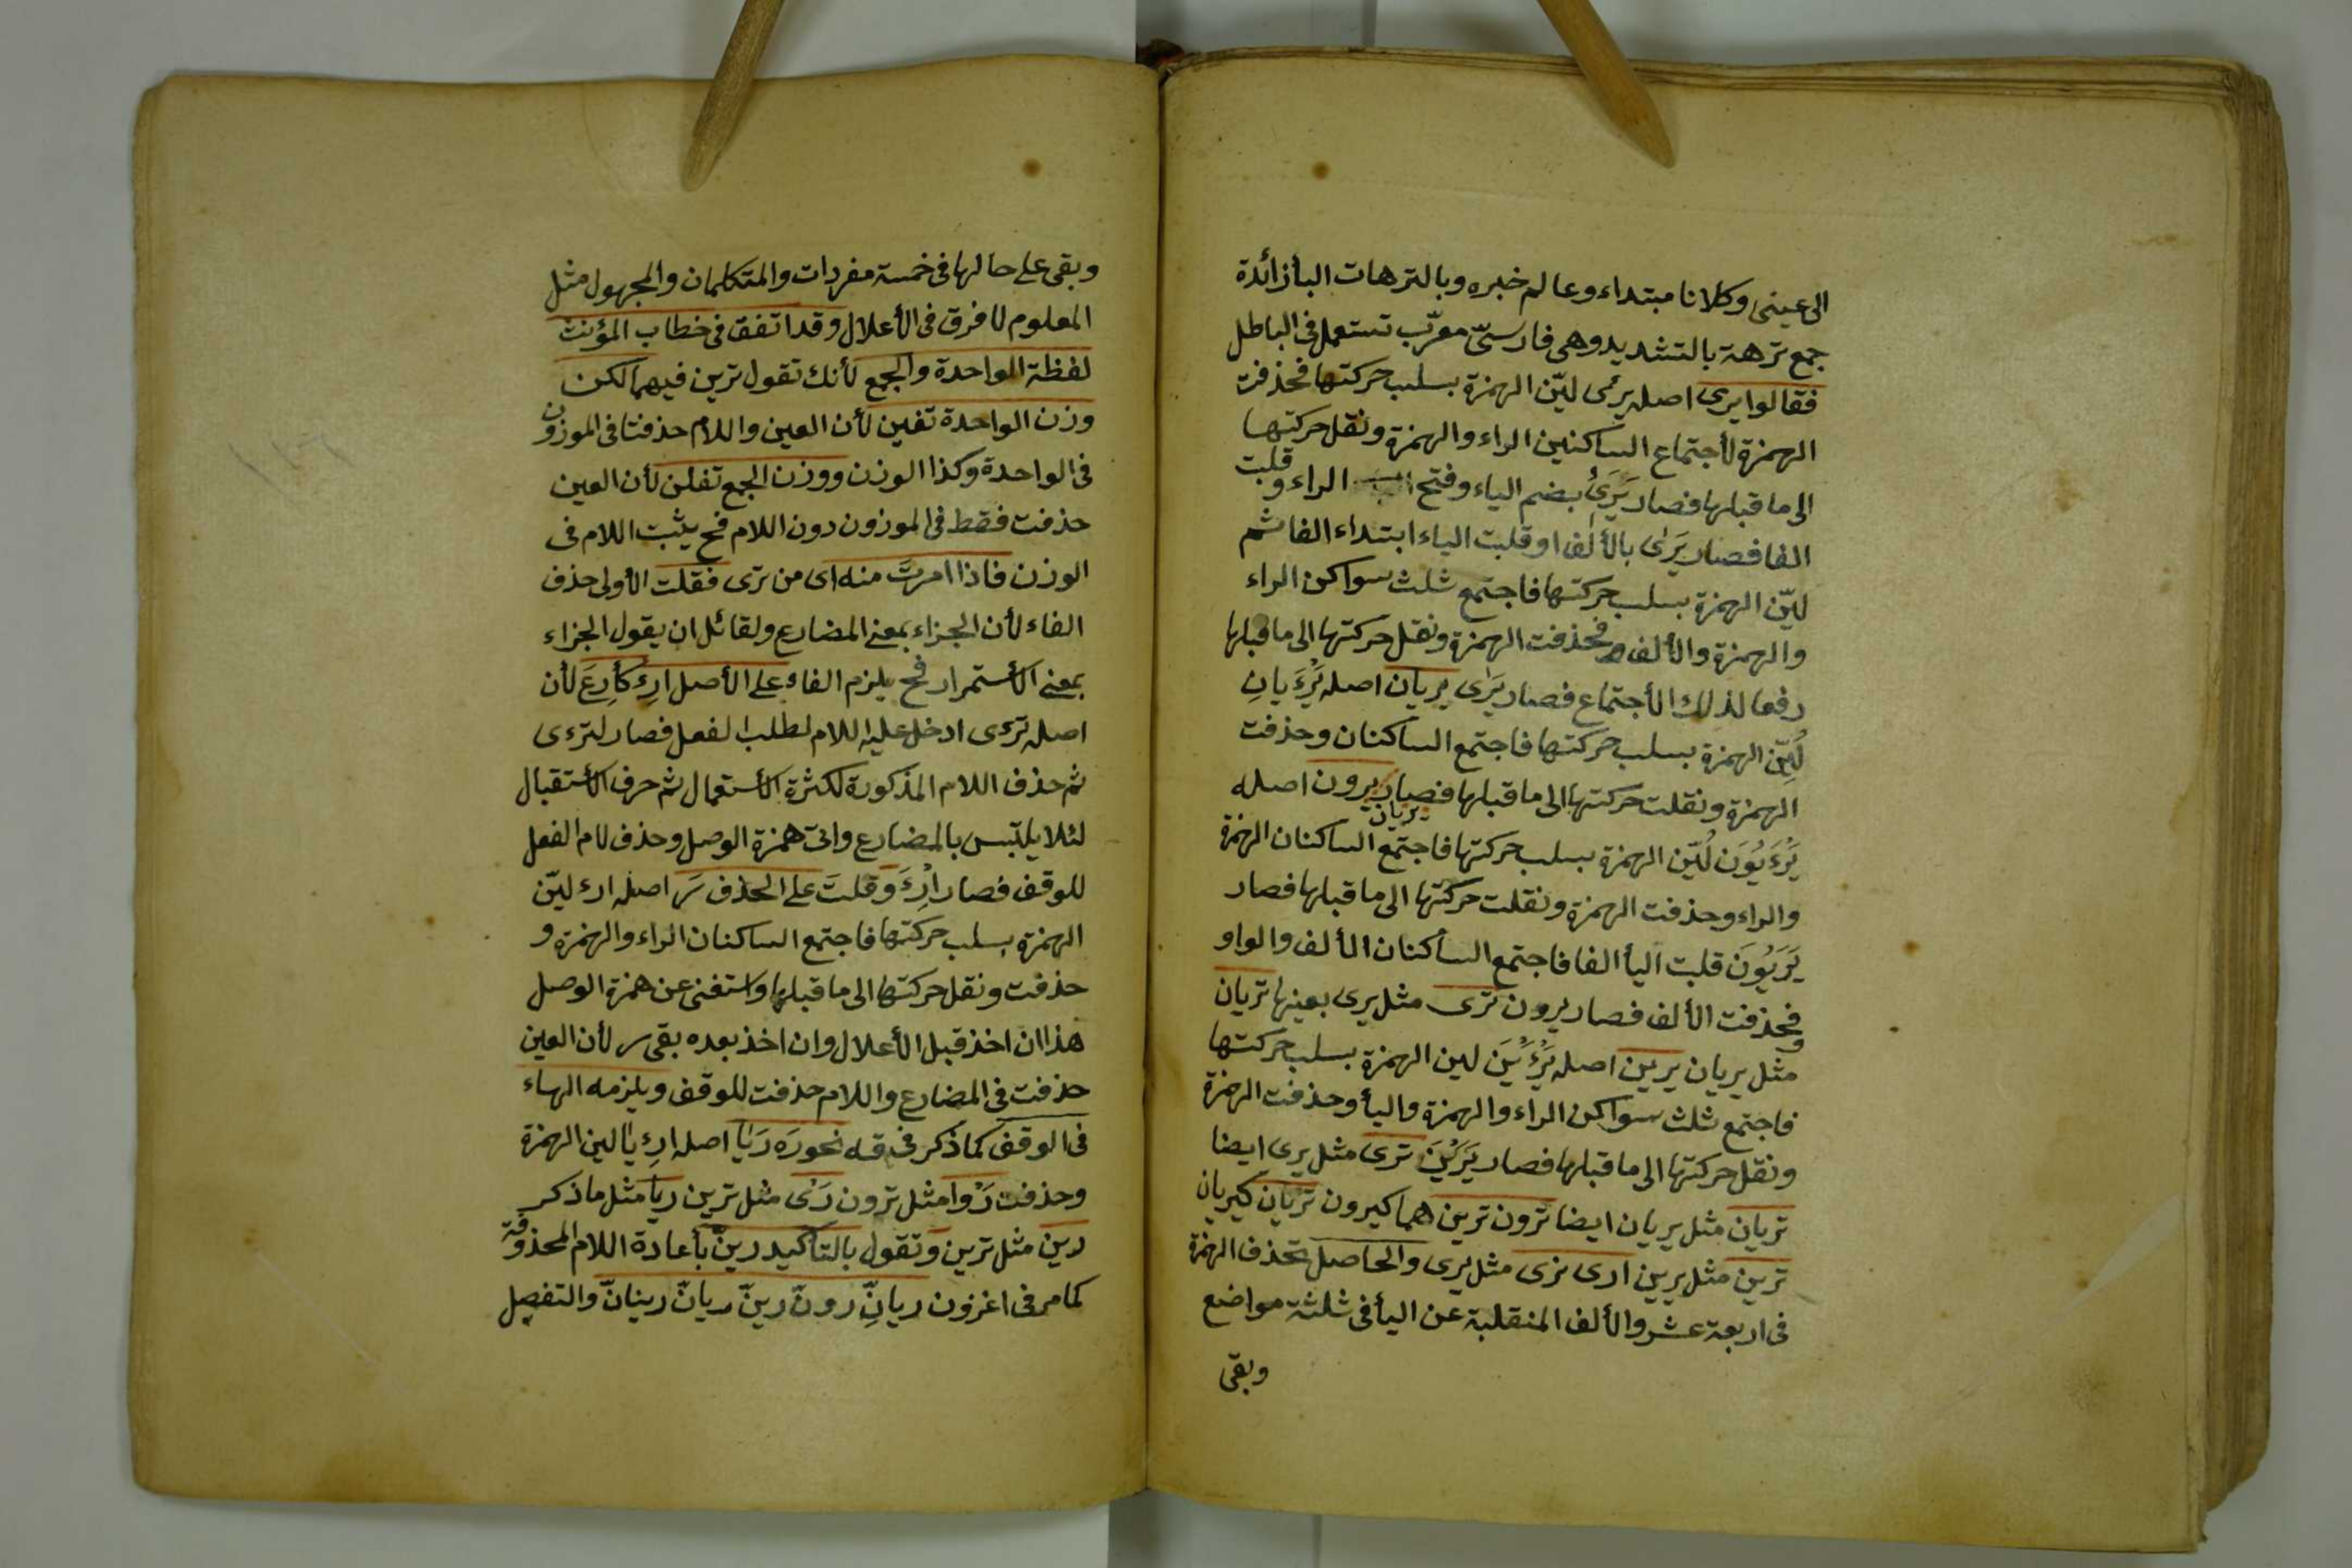 الى عينى وكلانا مبتداء وعالم خبره وبالترهات البأ زائدة
جمع ترهة بالتشديد وهى فارسىّ معرّب تستعمل فى الباطل
فقالوا يرى اصله يرئى ليّن الهمزة بسلب حركتها فحذفت
الهمزة لأجتماع الساكنين الراء والهمزة ونقل حركتها
الى ما قبلها فصار يَرَىُ بضم الياء وفتح الراء وقلبت
الفا فصار يَرٰى بالألف او قلبت الياء ابتداء الفا ثم
ليّن الهمزة بسلب حركتها فاجتمع ثلث سواكن الراء
والهمزة والألف فحذفت الهمزة ونقل حركتها الى ما قبلها
رفعا لذلك الأجتماع فصار يَرٰى يريان اصله يَرْءَيانِ
لُيِّن الهمزة بسلب حركتها فاجتمع الساكنان وحذفت
الهمزة ونقلت حركتها الى ما قبلها فصار يريان يرون اصله
يَرْءَيُوَن لُيّن الهمزة بسلب حركتها فاجتمع الساكنان الهمزة
والراء وحذفت الهمزة ونقلت حركتها الى ما قبلها فصار
يَرَيُوَن قلبت اليأ الفا فاجتمع الساكنان الألف والواو
فحذفت الألف فصار يرون ترى مثل يرى بعينها تريان
ومثل يريان يرين اصله يَرْءَيْنَ لين الهمزة بسلب حركتها
فاجتمع ثلث سواكن الراء والهمزة واليأ وحذفت الهمزة
ونقل حركتها الى ما قبلها فصار يَرَيْنَ ترى مثل يرى ايضا
تريان مثل يريان ايضا ترون ترين هما كيرون تريان كيريان
ترين مثل يرين ارى نرى مثل يرى والحاصل تحذف الهمزة
فى اربعة عشر والألف المنقلبة عن اليأ فى ثلثة مواضع
وبقى
وبقى على حالها فى خمسة مفردات والمتكلمان والمجهول مثل
المعلوم لا فرق فى الأعلال وقد اتفق فى خطاب المؤنث
لفظة الواحدة والجمع لأنك تقول ترين فيهما لكن
وزن الواحدة تفين لأن العين واللام حذفتا فى الموزون
فى الواحدة وكذا الوزن ووزن الجمع تفلن لأن العين
حذفت فقط فى الموزون دون اللام فح يثبت اللام فى
الوزن فاذا امرتَ منه اى من ترى فقلت الأولى حذف
الفاء لأن الجزاء بمعنى المضارع ولقائل ان يقول الجزاء
بمعنى الأستمرار فح يلزم الفاء على الأصل ارءِ كأرعَ لأن
اصله ترءى ادخل عليه اللام لطلب الفعل فصار لترءى
ثم حذف اللام المذكورة لكثرة الأستعمال ثم حرف الأستقبال
لئلا يلتبس بالمضارع واتى همزة الوصل وحذف لام الفعل
للوقف فصار ارءَ وَقلتَ على الحذف رَ اصله ارء ليّن
الهمزة بسلب حركتها فاجتمع الساكنان الراء والهمزة و
حذفت ونقل حركتها الى ما قبلها واستغنى عن همزة الوصل
هذا ان اخذ قبل الأعلال وان اخذ بعده بقى ر لأن العين
حذفت فى المضارع واللام حذفت للوقف ويلزمه الهاء
فى الوقف كما ذكر فى قه نحو رَه رَيَا اصله ارءيا لين الهمزة
وحذفت رَوْا مثل ترون رَىْ مثل ترين ريا مثل ما ذكر
رين مثل ترين وتقول بالتاكيد رينّ بأعادة اللام المحذوفة
كما مر فى اغزون ريانِّ رونّ رينّ ريانّ رينانّ والتفصل